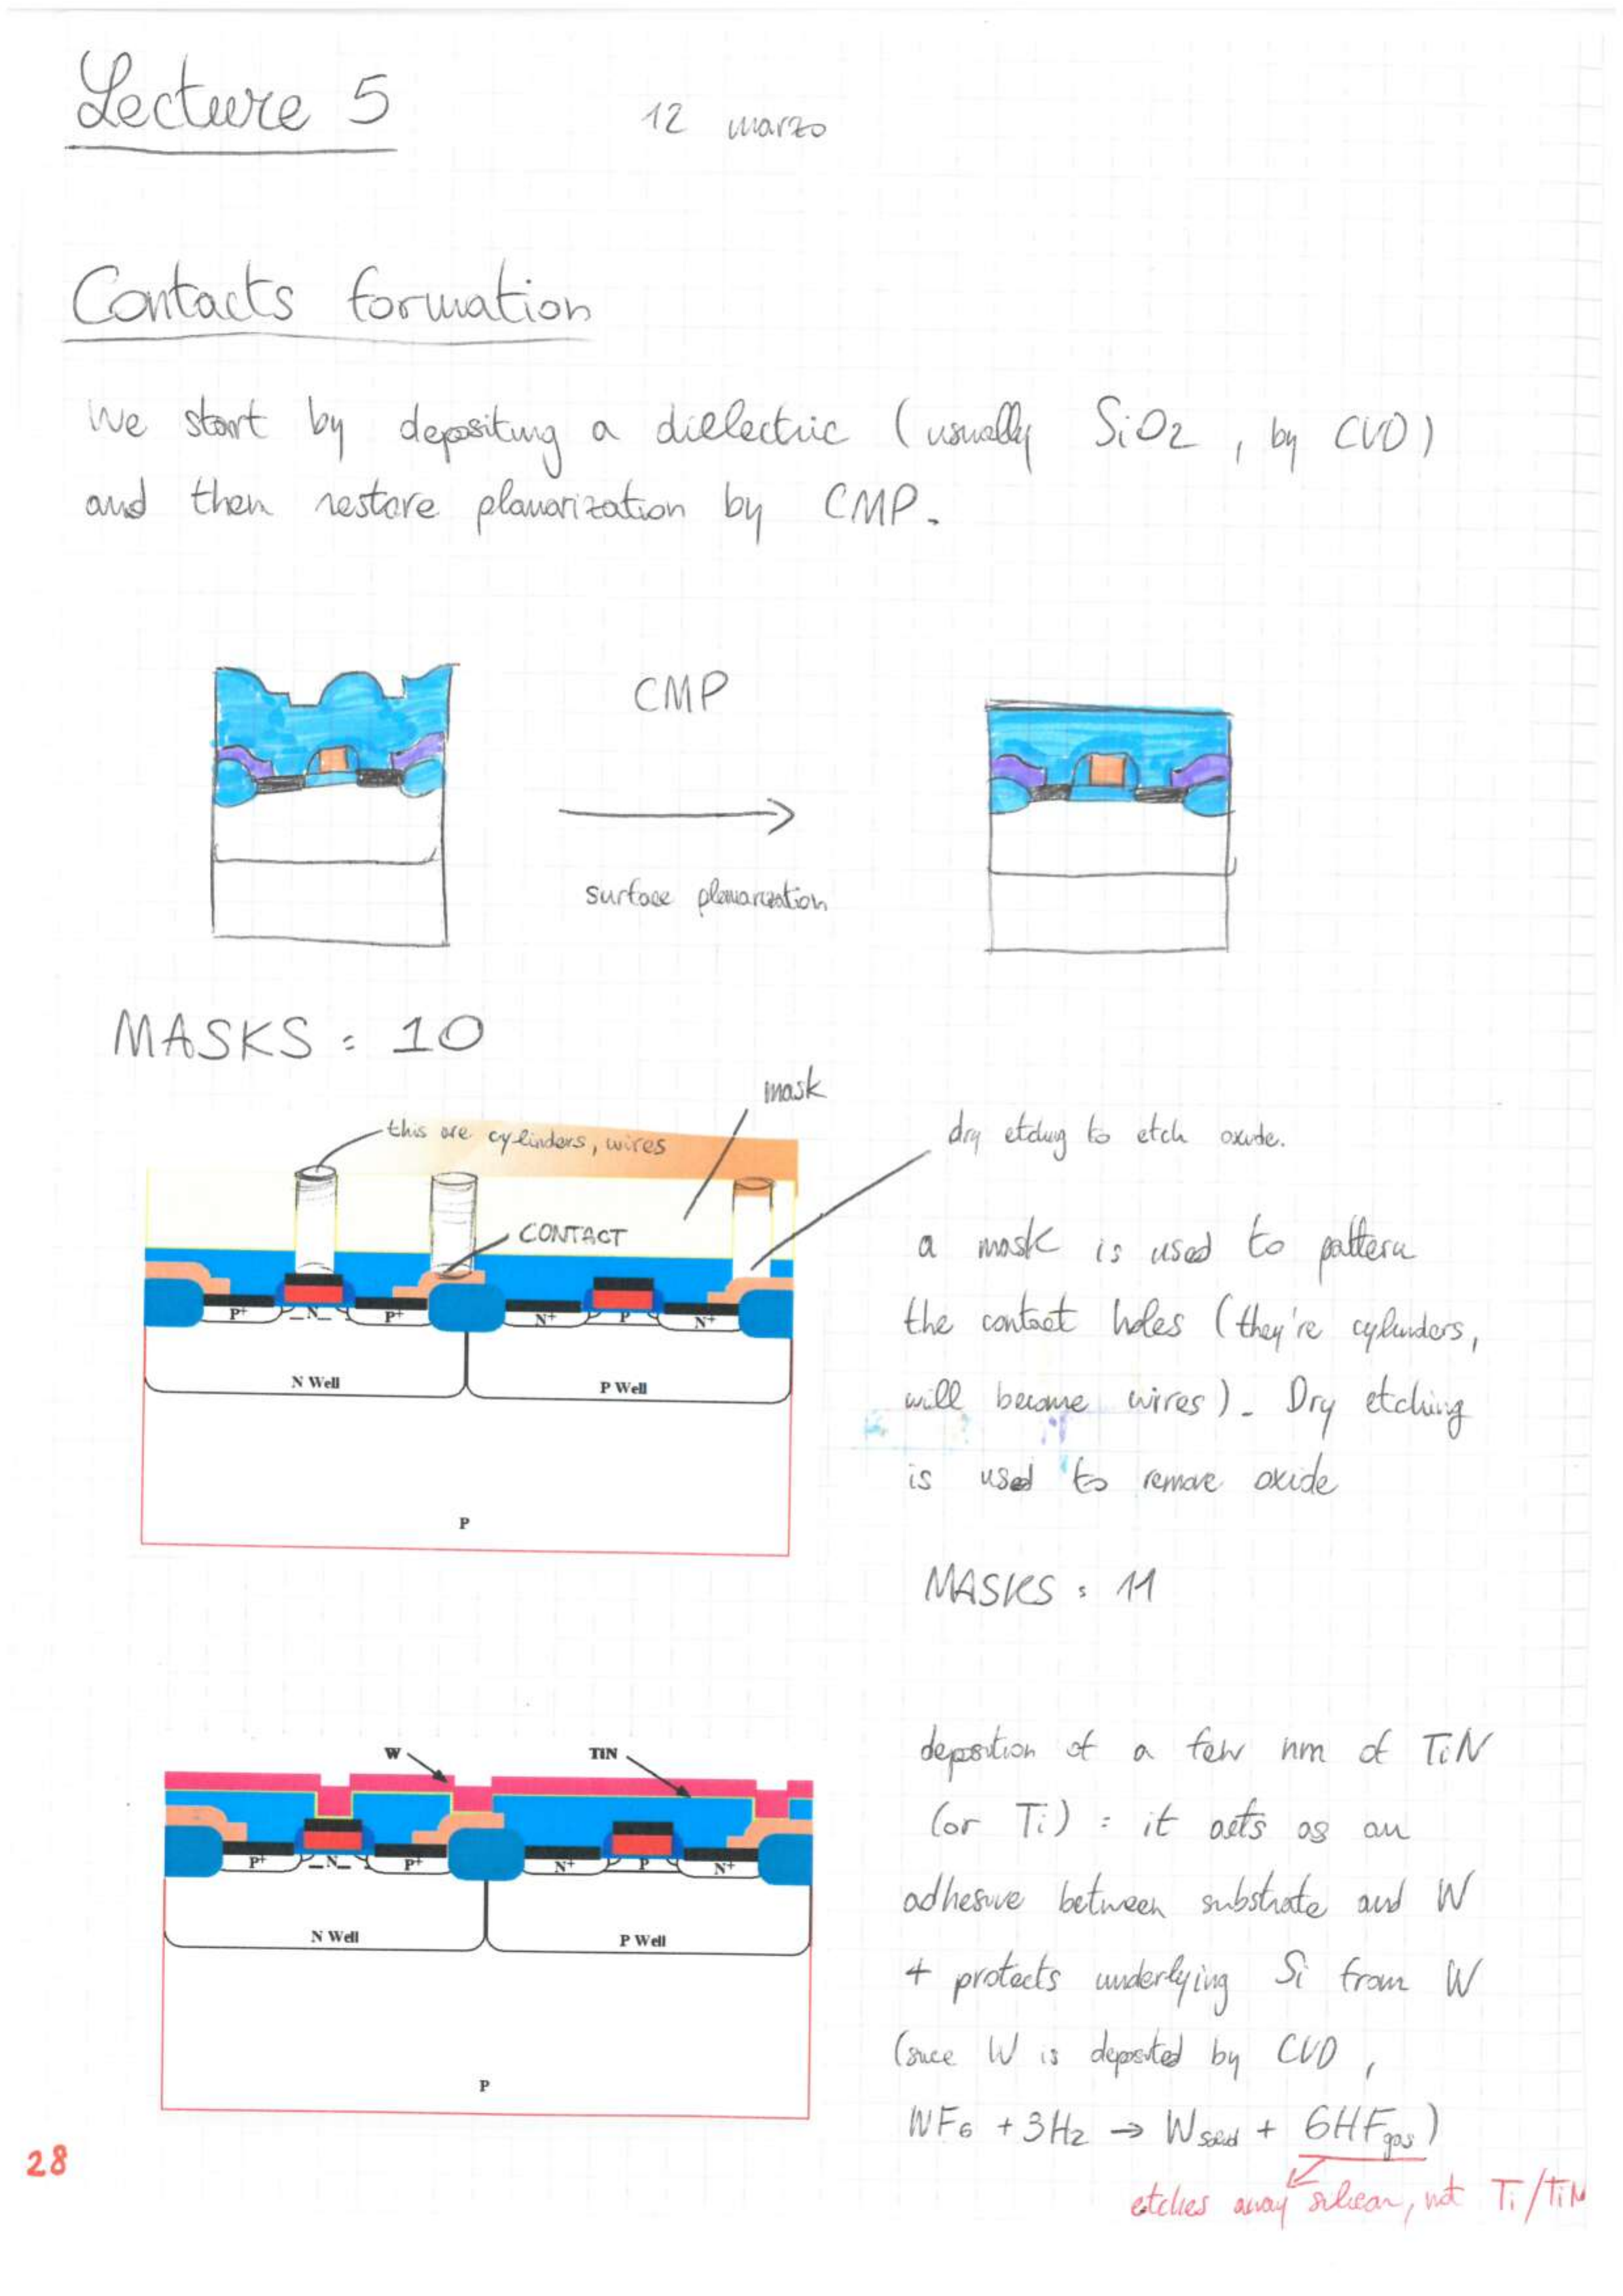 Lecture 5
12 marzo
Contacts formation
We start by depositing a dielectric (usually SiO2, by CVD)
and then restore planarization by CMP.
CMP
surface planarization
MASKS = 10
mask
this are cylinders, wires
dry etching to etch oxide.
CONTACT
P+ N P+ N+ P N+
N Well
P Well
P
a mask is used to pattern
the contact holes (they're cylinders,
will become wires). Dry etching
is used to remove oxide
MASKS = 11
W
TiN
P+ N P+ N+ P N+
N Well
P Well
P
deposition of a few nm of TiN
(or Ti) = it acts as an
adhesive between substrate and W
+ protects underlying Si from W
(since W is deposited by CVD,
WF6 + 3H2 → Wsolid + 6HFgas)
etches away silicon, not Ti/TiN
28